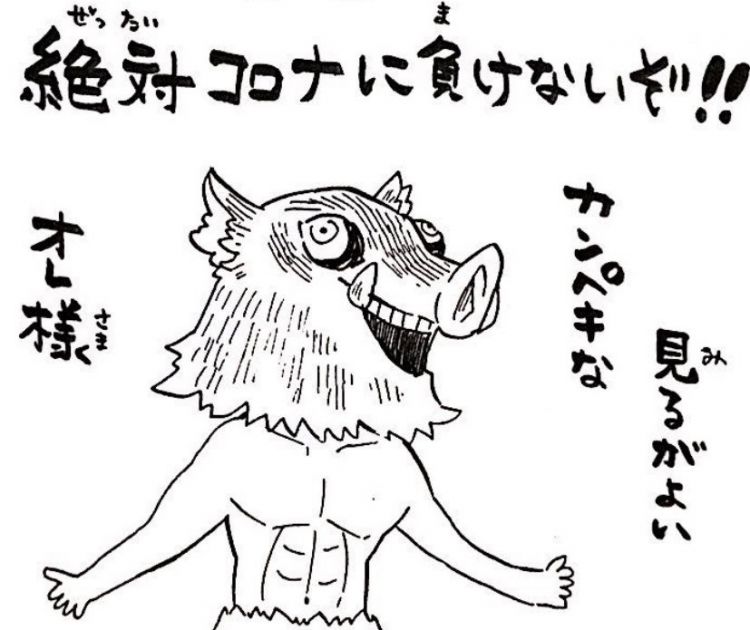 絶対コロナに負けないぞ!!
見るがよい
カンペキな
オレ様